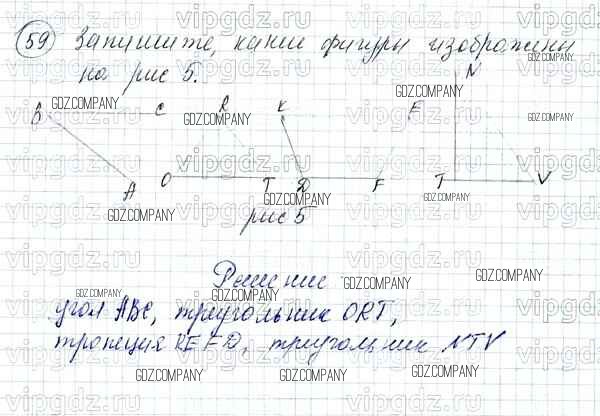 59 Запишите, какие фигуры изображены
на рис 5.
B C R K E N
A O T D F T V
рис 5
Решение
угол ABC, треугольник ORT,
трапеция KEFD, треугольник NTV
vipgdz.ru
GDZ.COMPANY